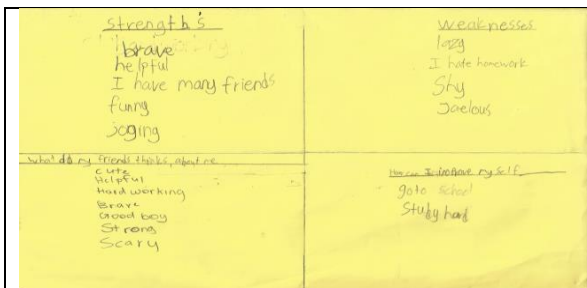 strength's
brave
helpful
I have many friends
funny
joging
weaknesses
lazy
I hate homework
Shy
Jaelous
what do my friends thinks about me
cute
Helpful
Hard working
Brave
Good boy
Strong
Scary
How can I improve my self
goto school
Study hard